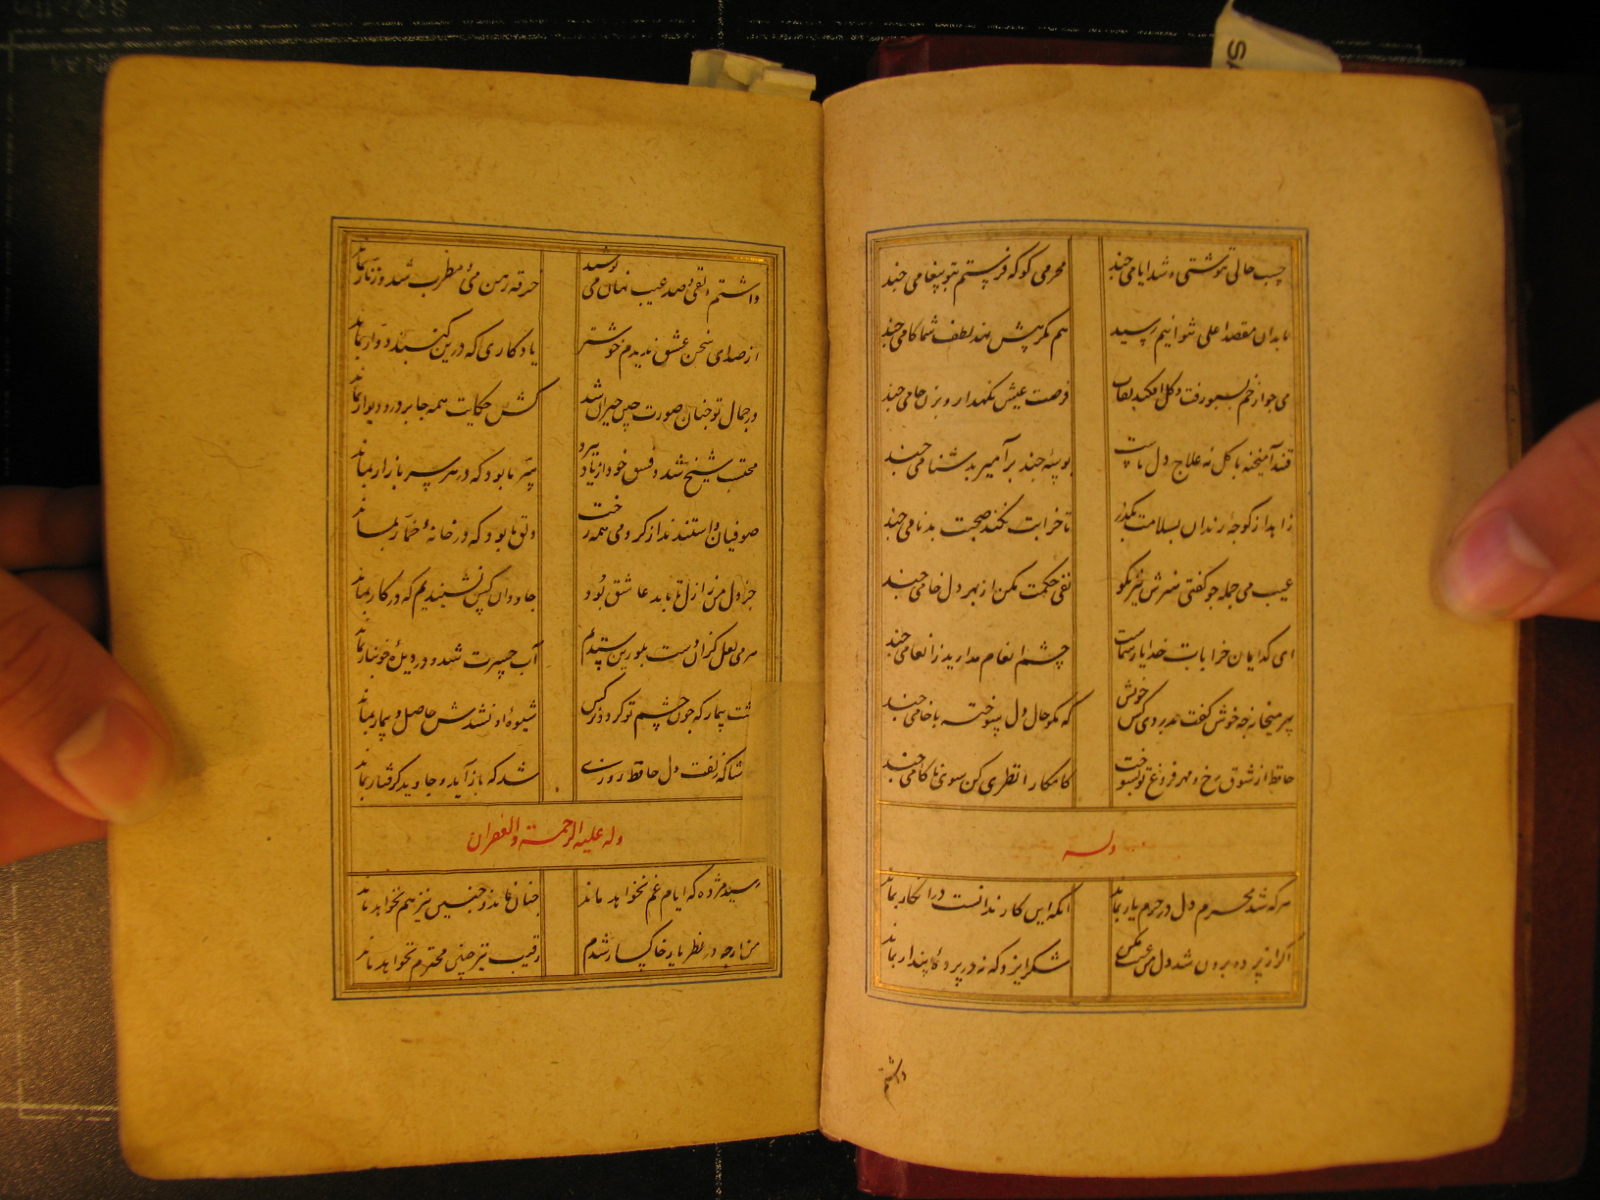 حسب حالی ننوشتی و شد ایامی چند
محرمی کو که فرستم بتو پیغامی چند
ما بدان مقصد اعلی نتوانیم رسید
هم مکر پیش نهد لطف شما کامی چند
می چو از خم بسبو رفت و کل افکند نقاب
فرصت عیش نکهدار و بزن جامی چند
قند آمیخته با کل نه علاج دل ماست
بوسه چند برآمیز بدشنامی چند
زاهد از کوچه رندان بسلامت بکذر
تا خرابت نکند صحبت بدنامی چند
عیب می جمله چو کفتی هنرش نیز بکو
نفی حکمت مکن از بهر دل خامی چند
ای کدایان خرابات خدا یار شماست
چشم انعام مدارید ز انعامی چند
پیر میخانه چه خوش کفت بدردی کش خویش
که مکو حال دل سوخته با خامی چند
حافظ از شوق رخ مهر فروغ تو بسوخت
کامکارا نظری کن سوی ناکامی چند
وله
هرکه شد محرم دل در حرم یار بماند
انکه این کار ندانست در انکار بماند
اکر از پرده برون شد دل من عیب مکن
شکر ایزد که نه در پرده پندار بماند
داشتم
داشتم دلقی و صد عیب نهان می پوشید
خرقه رهن می و مطرب شد و زنار بماند
از صدای سخن عشق ندیدم خوشتر
یادکاری که درین کنبد دوار بماند
در جمال تو چنان صورت چین حیران شد
کش حکایت همه جا بر در و دیوار بماند
محتسب شیخ شد و فسق خود از یاد ببرد
که در هر سر بازار بماند
صوفیان واستدند از کرو می همه رخت
دلق ما بود که در خانه خمار بماند
جز دل من ز ازل تا بابد عاشق بود
جاودان کس نشنیدیم که در کار بماند
هر می لعل کزان دست بلورین ستدم
آب حسرت شد و در دیده خونبار بماند
کشت بیمار که چون چشم تو کردد نرکس
شیوه او نشدش حاصل و بیمار بماند
زلفت دل حافظ روزی
شد که بازآید و جاوید کرفتار بماند
وله علیه الرحمة والغفران
رسید مژده که ایام غم نخواهد ماند
چنان نماند و چنین نیز هم نخواهد ماند
من ارچه در نظر یار خاکسار شدم
رقیب نیز چنین محترم نخواهد ماند